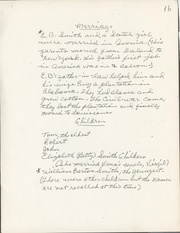 16
Marriage
E. B. Smith and a Scotch girl
were married in America (his
parents moved from Scotland to
New York. His father's first job
in America was in a saloon)
E. B.'s father-in-law helped him and
his wife buy a plantation in
Alabama. They had slaves and
grew cotton. The Civil War came,
they lost the plantation and finally
moved to Tennessee
Children
Tom, the eldest
Robert
John
Elizabeth (Betty) Smith Childers
(she married Vera's uncle, Virgil)
* William Burton Smith, the youngest
(There were other children but the names
are not recalled at this time)